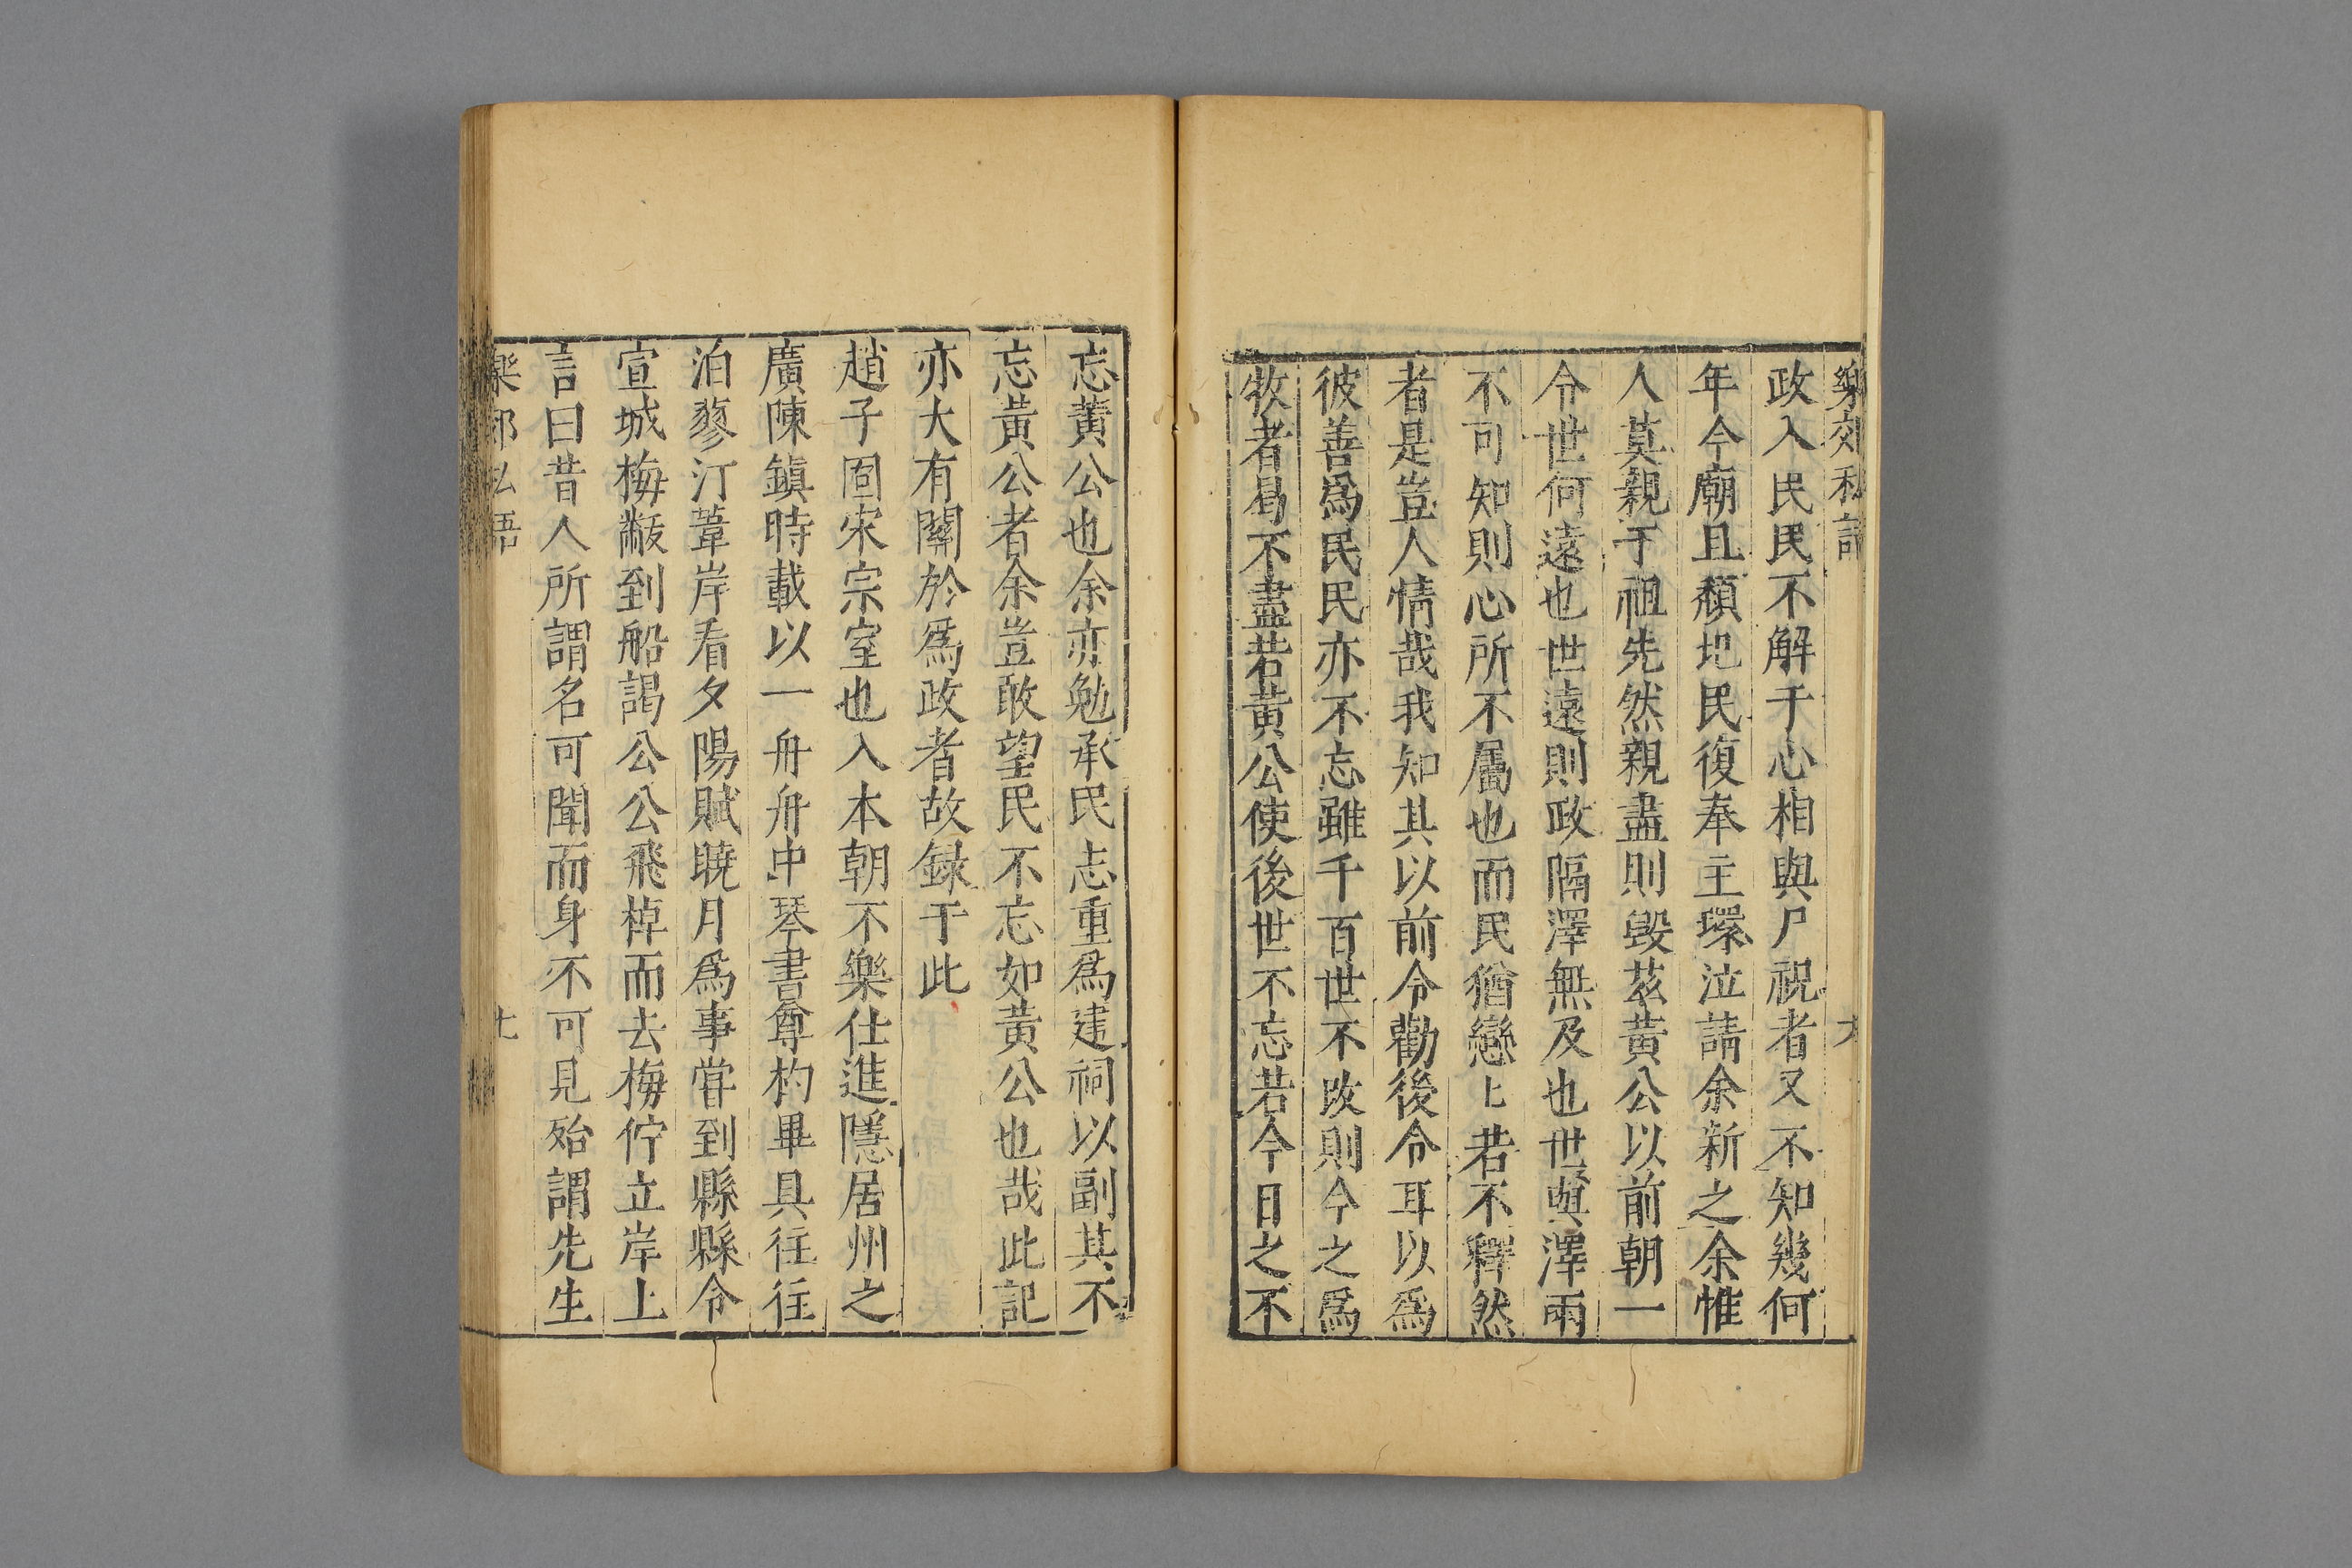 樂郊私語
六
政入民民不解于心相與尸祝者又不知幾何
年今廟且頹圯民復奉主環泣請余新之余惟
人莫親于祖先然親盡則毀茲黃公以前朝一
令世何遠也世遠則政隔澤無及也世與澤兩
不可知則心所不屬也而民猶戀上若不釋然
者是豈人情哉我知其以前令勸後令耳以爲
彼善爲民民亦不忘雖千百世不改則今之爲
牧者曷不盡若黃公使後世不忘若今日之不
忘黃公也余亦勉承民志重爲建祠以副其不
忘黃公者余豈敢望民不忘如黃公也哉此記
亦大有關於爲政者故録于此
趙子固宋宗室也入本朝不樂仕進隱居州之
廣陳鎮時載以一舟舟中琴書尊杓畢具往往
泊蓼汀葦岸看夕陽賦曉月爲事嘗到縣縣令
宣城梅黻到船謁公公飛棹而去梅佇立岸上
言曰昔人所謂名可聞而身不可見殆謂先生
樂郊私語
七